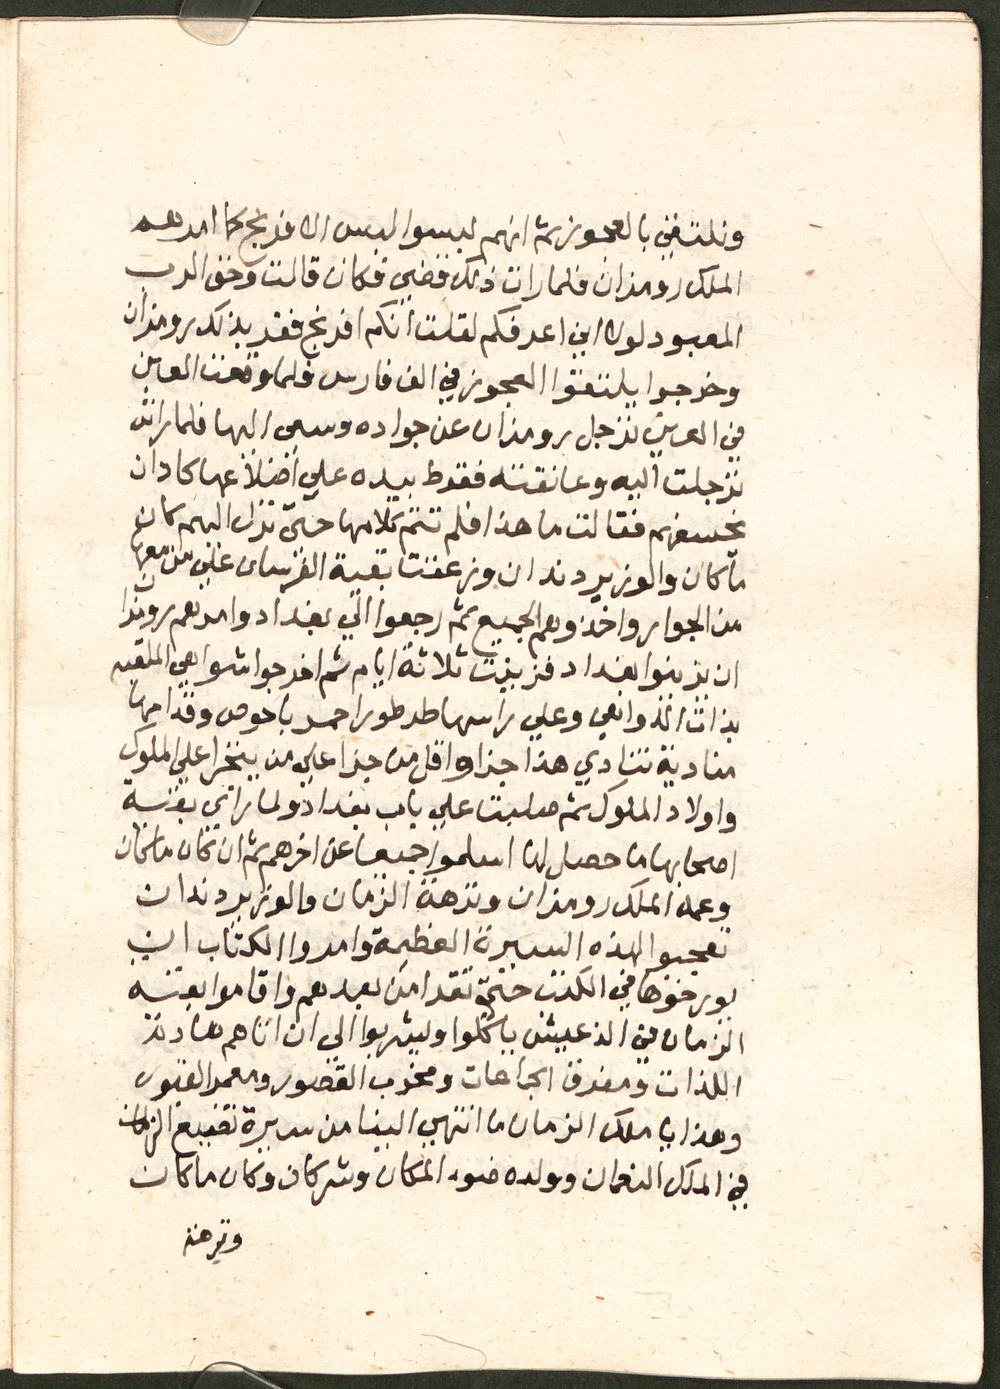 ونلتقي بالعجوز ثم انهم لبسوا لبس الافرنج كما امرهم
الملك رومزان فلما رات ذلك قضي فكان قالت وحق الرب
المعبود لولا اني اعرفكم لقلت انكم افرنج فقد بذلك رومزان
وخرجوا يلتقوا العجوز في الف فارس فلما وقعت العين
في العين نزجل رومزان عن جواده وسعي اليها فلما راته
نزجلت اليه وعانقته فقرط بيده علي اضلاعها كادان
يخسفهم فقالت ما هذا فلم تتم كلامها حتي نزل اليهم كان
ما كان والوزير دندان وزعقت بقية الفرسان علي من معها
من الجوار واخذوهم الجميع ثم رجعوا الي بغداد وامرهم رومزان
ان يزينوا بغداد فزينت ثلاثة ايام ثم اخرجوا شواهي الملقبه
بذات الدواهي وعلي راسها طرطور احمر باخوص وقدامها
منادية تنادي هذا جزا واقل من جزا علي من يتجرا علي الملوك
واولاد الملوك ثم صلبت علي باب بغداد ولما راي بقية
اصحابها ما حصل لها اسلموا جميعا عن اخرهم ثم ان كان ما كان
وعمه الملك رومزان ونزهة الزمان والوزير دندان
تعجبوا لهذه السيرة العظيمة وامروا الكتاب ان
يورخوها في الكتب حتي تقرا من بعدهم واقاموا بقية
الزمان في الذ عيش ياكلوا ويشربوا الي ان اتاهم هادم
اللذات ومفرق الجماعات ومخرب القصور ومعمر القبور
وهذا يا ملك الزمان ما انتهي الينا من سيرة تقنيع الزمان
في الملك النعمان وولده ضوء المكان وشركان وكان ماكان
ونزهة